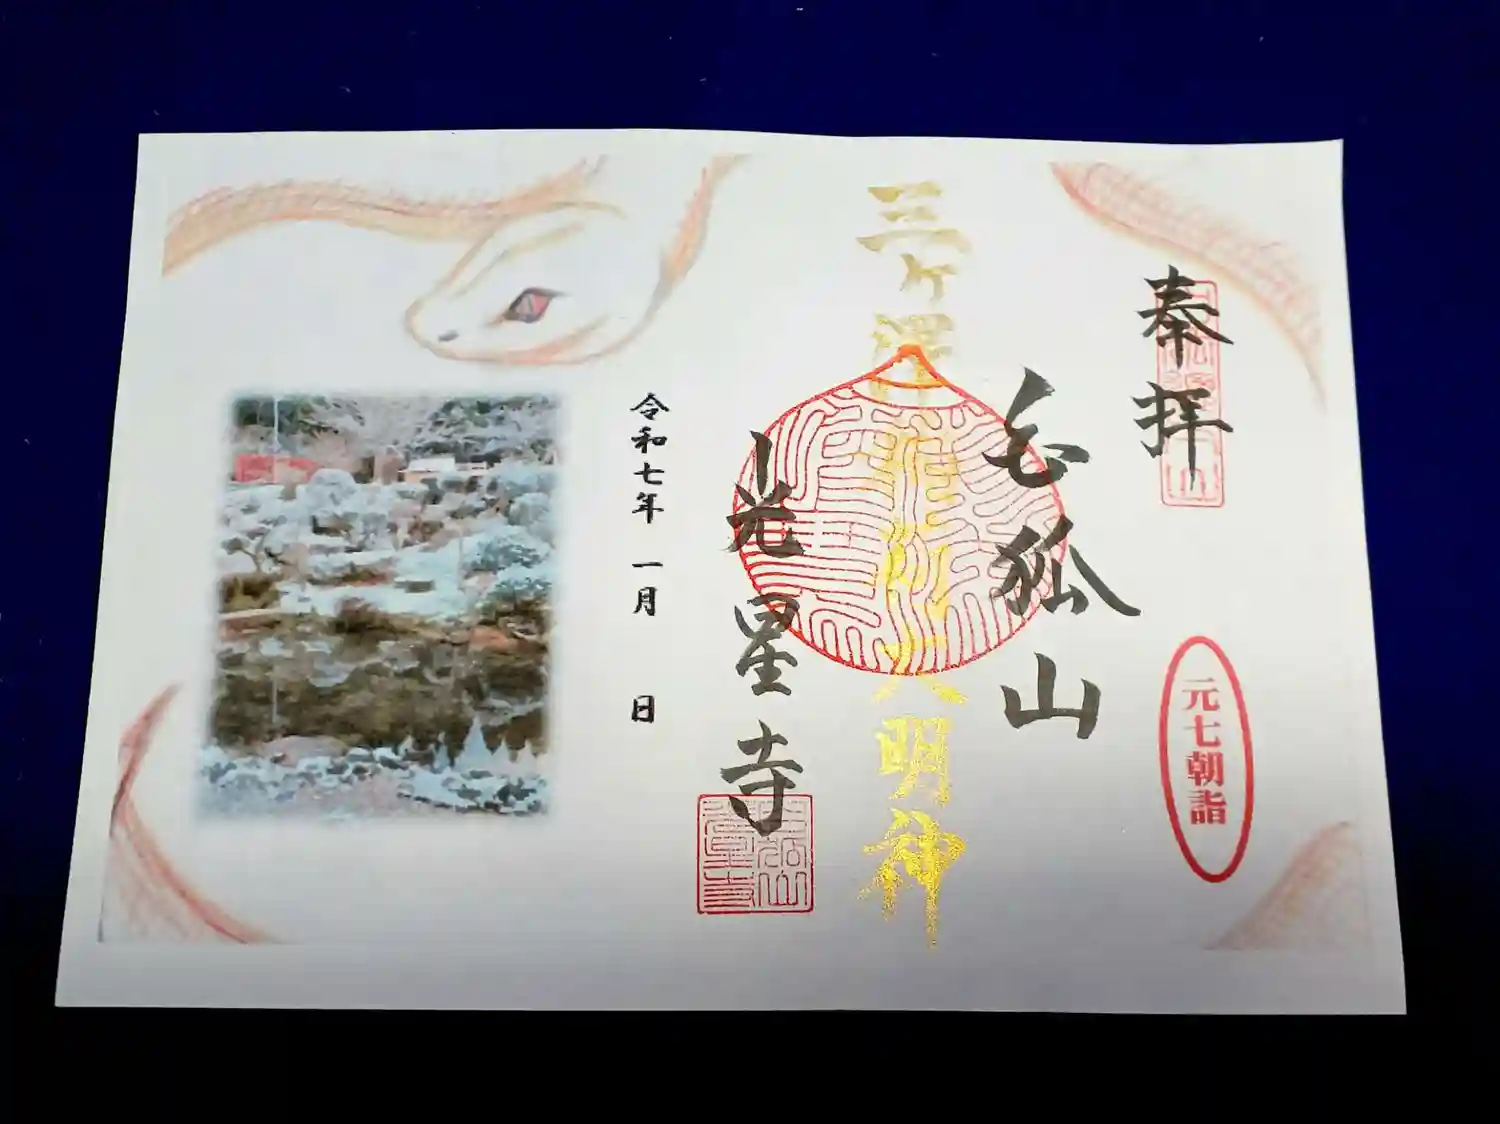 奉拝
元七朝詣
白狐山
三ヶ澤 大明神
光星寺
令和七年 一月 日